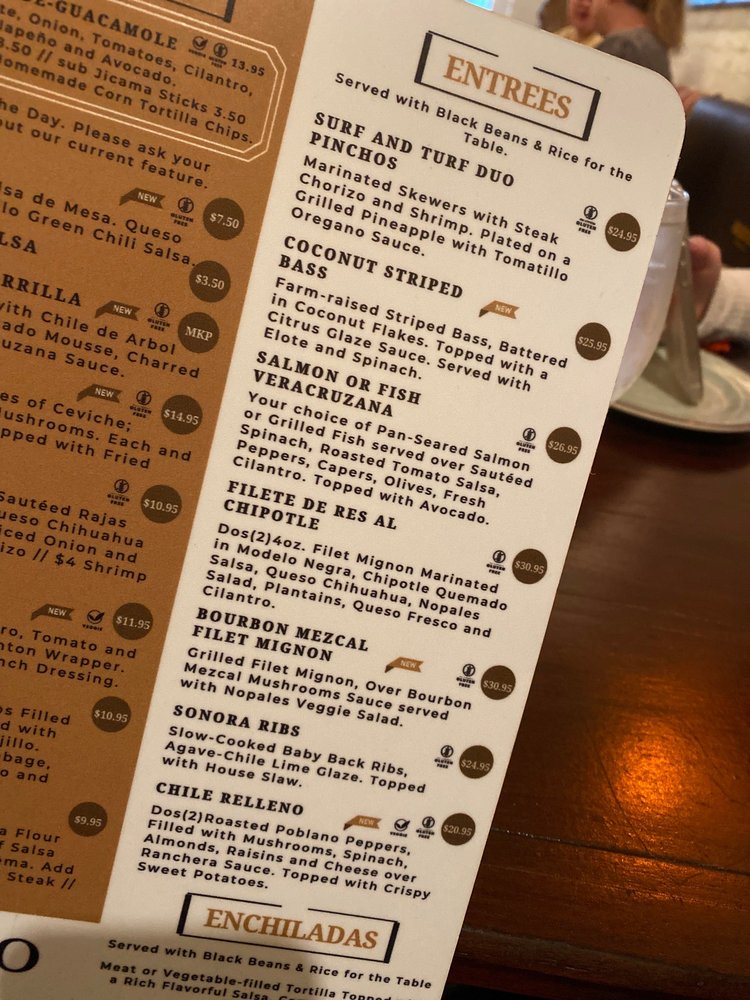 DE-GUACAMOLE
VEGGIE GLUTEN FREE 13.95
Onion, Tomatoes, Cilantro,
Jalapeño and Avocado.
3.50 // sub Jicama Sticks 3.50
Homemade Corn Tortilla Chips.
the Day. Please ask your
out our current feature.
NEW GLUTEN FREE $7.50
Salsa de Mesa. Queso
Green Chili Salsa.
$3.50
NEW GLUTEN FREE MKP
with Chile de Arbol
Mousse, Charred
Sauce.
NEW GLUTEN FREE $14.95
of Ceviche;
Mushrooms. Each and
Topped with Fried
GLUTEN FREE $10.95
Sautéed Rajas
Queso Chihuahua
Onion and
// $4 Shrimp
NEW VEGGIE $11.95
Tomato and
Wonton Wrapper.
Ranch Dressing.
$10.95
Filled
with
and
$9.95
Flour
Salsa
Add
Steak //
ENTREES
Served with Black Beans & Rice for the
Table.
SURF AND TURF DUO
PINCHOS
GLUTEN FREE $24.95
Marinated Skewers with Steak
Chorizo and Shrimp. Plated on a
Grilled Pineapple with Tomatillo
Oregano Sauce.
COCONUT STRIPED
BASS
NEW $25.95
Farm-raised Striped Bass, Battered
in Coconut Flakes. Topped with a
Citrus Glaze Sauce. Served with
Elote and Spinach.
SALMON OR FISH
VERACRUZANA
GLUTEN FREE $26.95
Your choice of Pan-Seared Salmon
or Grilled Fish served over Sautéed
Spinach, Roasted Tomato Salsa,
Peppers, Capers, Olives, Fresh
Cilantro. Topped with Avocado.
FILETE DE RES AL
CHIPOTLE
GLUTEN FREE $30.95
Dos(2)4oz. Filet Mignon Marinated
in Modelo Negra, Chipotle Quemado
Salsa, Queso Chihuahua, Nopales
Salad, Plantains, Queso Fresco and
Cilantro.
BOURBON MEZCAL
FILET MIGNON
NEW GLUTEN FREE $30.95
Grilled Filet Mignon, Over Bourbon
Mezcal Mushrooms Sauce served
with Nopales Veggie Salad.
SONORA RIBS
GLUTEN FREE $24.95
Slow-Cooked Baby Back Ribs,
Agave-Chile Lime Glaze. Topped
with House Slaw.
CHILE RELLENO
NEW VEGGIE GLUTEN FREE $20.95
Dos(2)Roasted Poblano Peppers,
Filled with Mushrooms, Spinach,
Almonds, Raisins and Cheese over
Ranchera Sauce. Topped with Crispy
Sweet Potatoes.
ENCHILADAS
Served with Black Beans & Rice for the Table
Meat or Vegetable-filled Tortilla Topped
a Rich Flavorful Salsa,